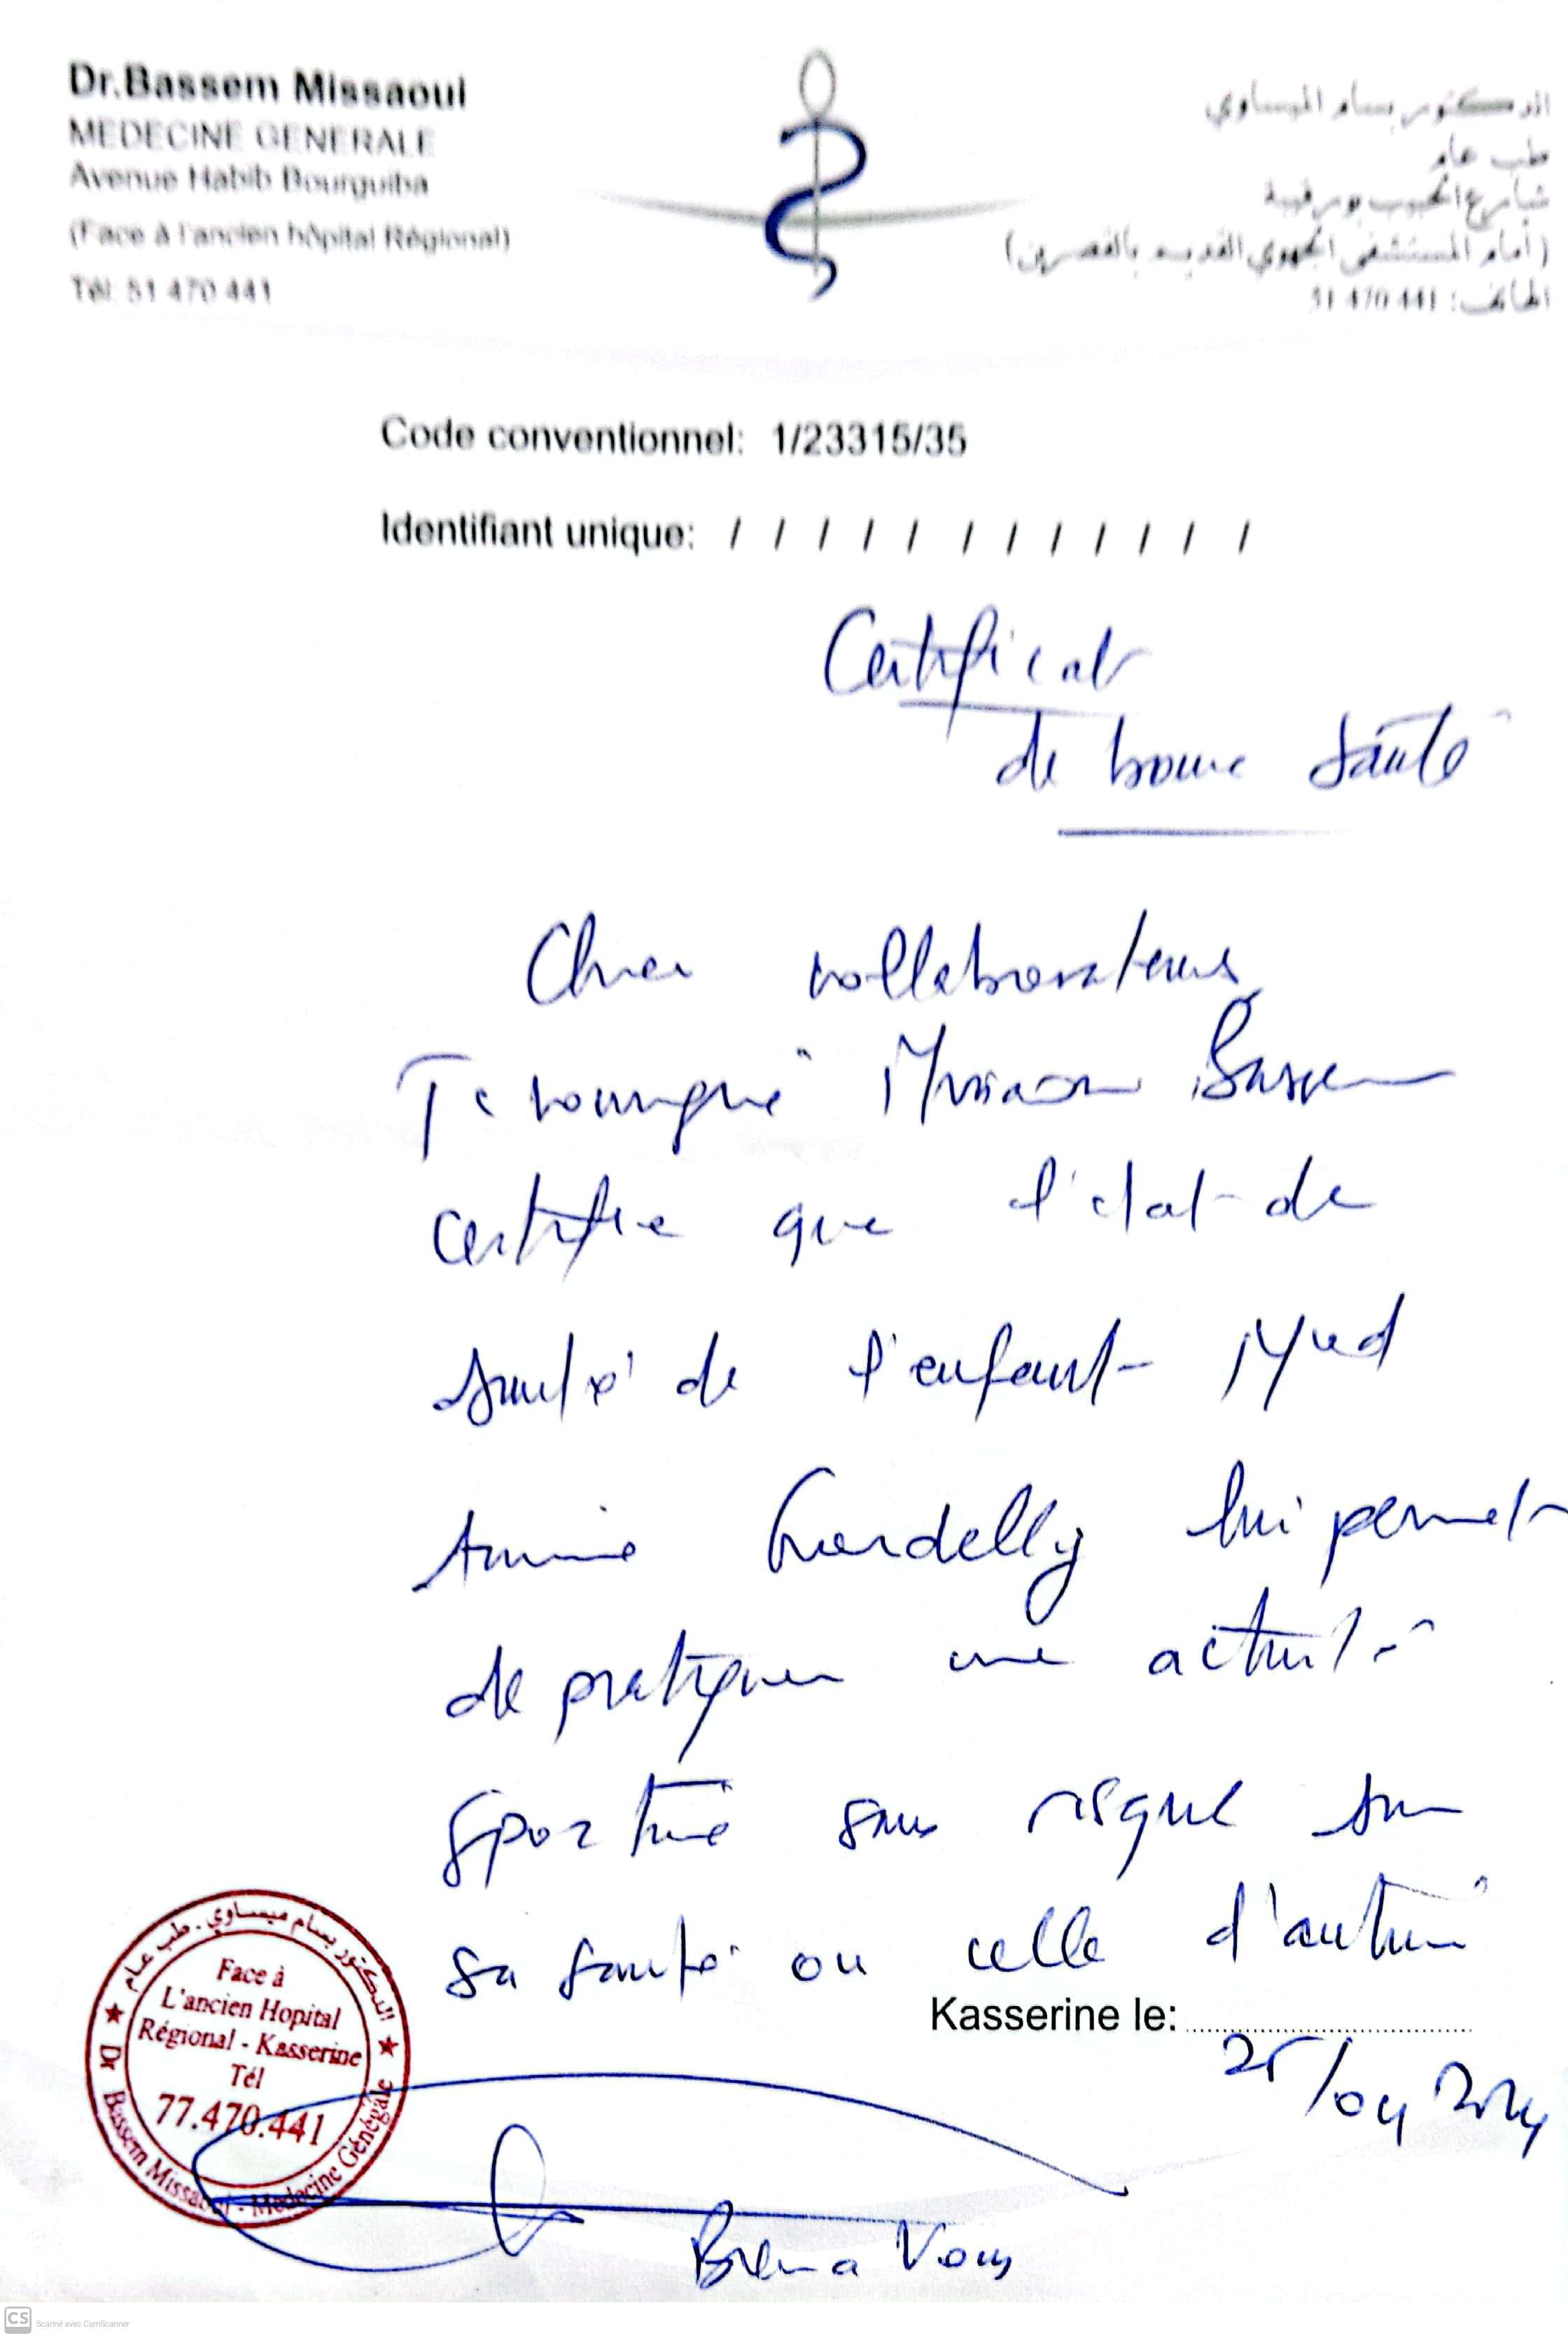 Dr.Bassem Missaoui
MEDECINE GENERALE
Avenue Habib Bourguiba
(Face à l'ancien hôpital Régional)
Tél: 51 470 441
الدكتور بسام الميساوي
طب عام
شارع الحبيب بورقيبة
(أمام المستشفى الجهوي القديم بالقصرين)
الهاتف: 51 470 441
Code conventionnel: 1/23315/35
Identifiant unique: / / / / / / / / / / / /
Certificat
de bonne santé
Cher collaborateurs
Je soussigné Missaoui Bassem
certifie que l'état de
santé de l'enfant Med
Amine Guerdelly lui permet
de pratiquer une activité
sportive sans risque sur
sa santé ou celle d'autrui
Kasserine le:
25/04/2024
الدكتور بسام ميساوي - طب عام
Face à
L'ancien Hopital
Régional - Kasserine
Tél
77.470.441
Dr Bassem Missaoui - Médecine Générale
Bien à Vous
CS Scanné avec CamScanner